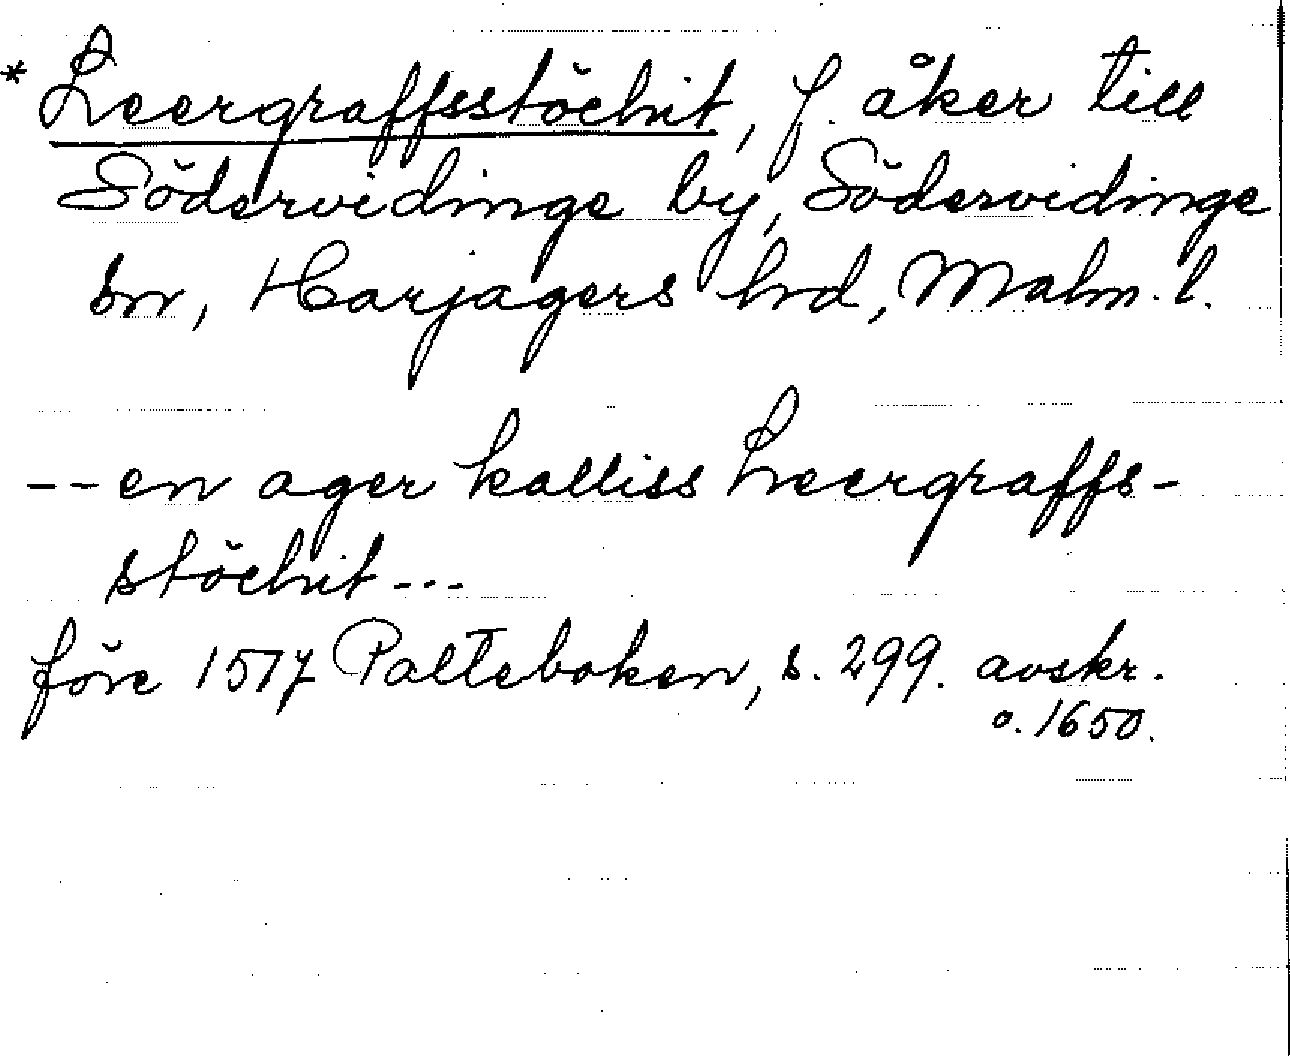 * Leergraffsstöchit, f. åker till
Södervidinge by, Södervidinge
sn, Harjagers hd, Malm. l.
-- en ager kalliss Leergraffs-
stöchit ---
före 1517 Palteboken, s. 299. avskr.
o. 1650.